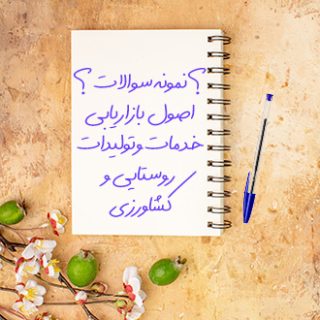 ؟ نمونه سوالات ؟
اصول بازاریابی
خدمات و تولیدات
روستایی و
کشاورزی